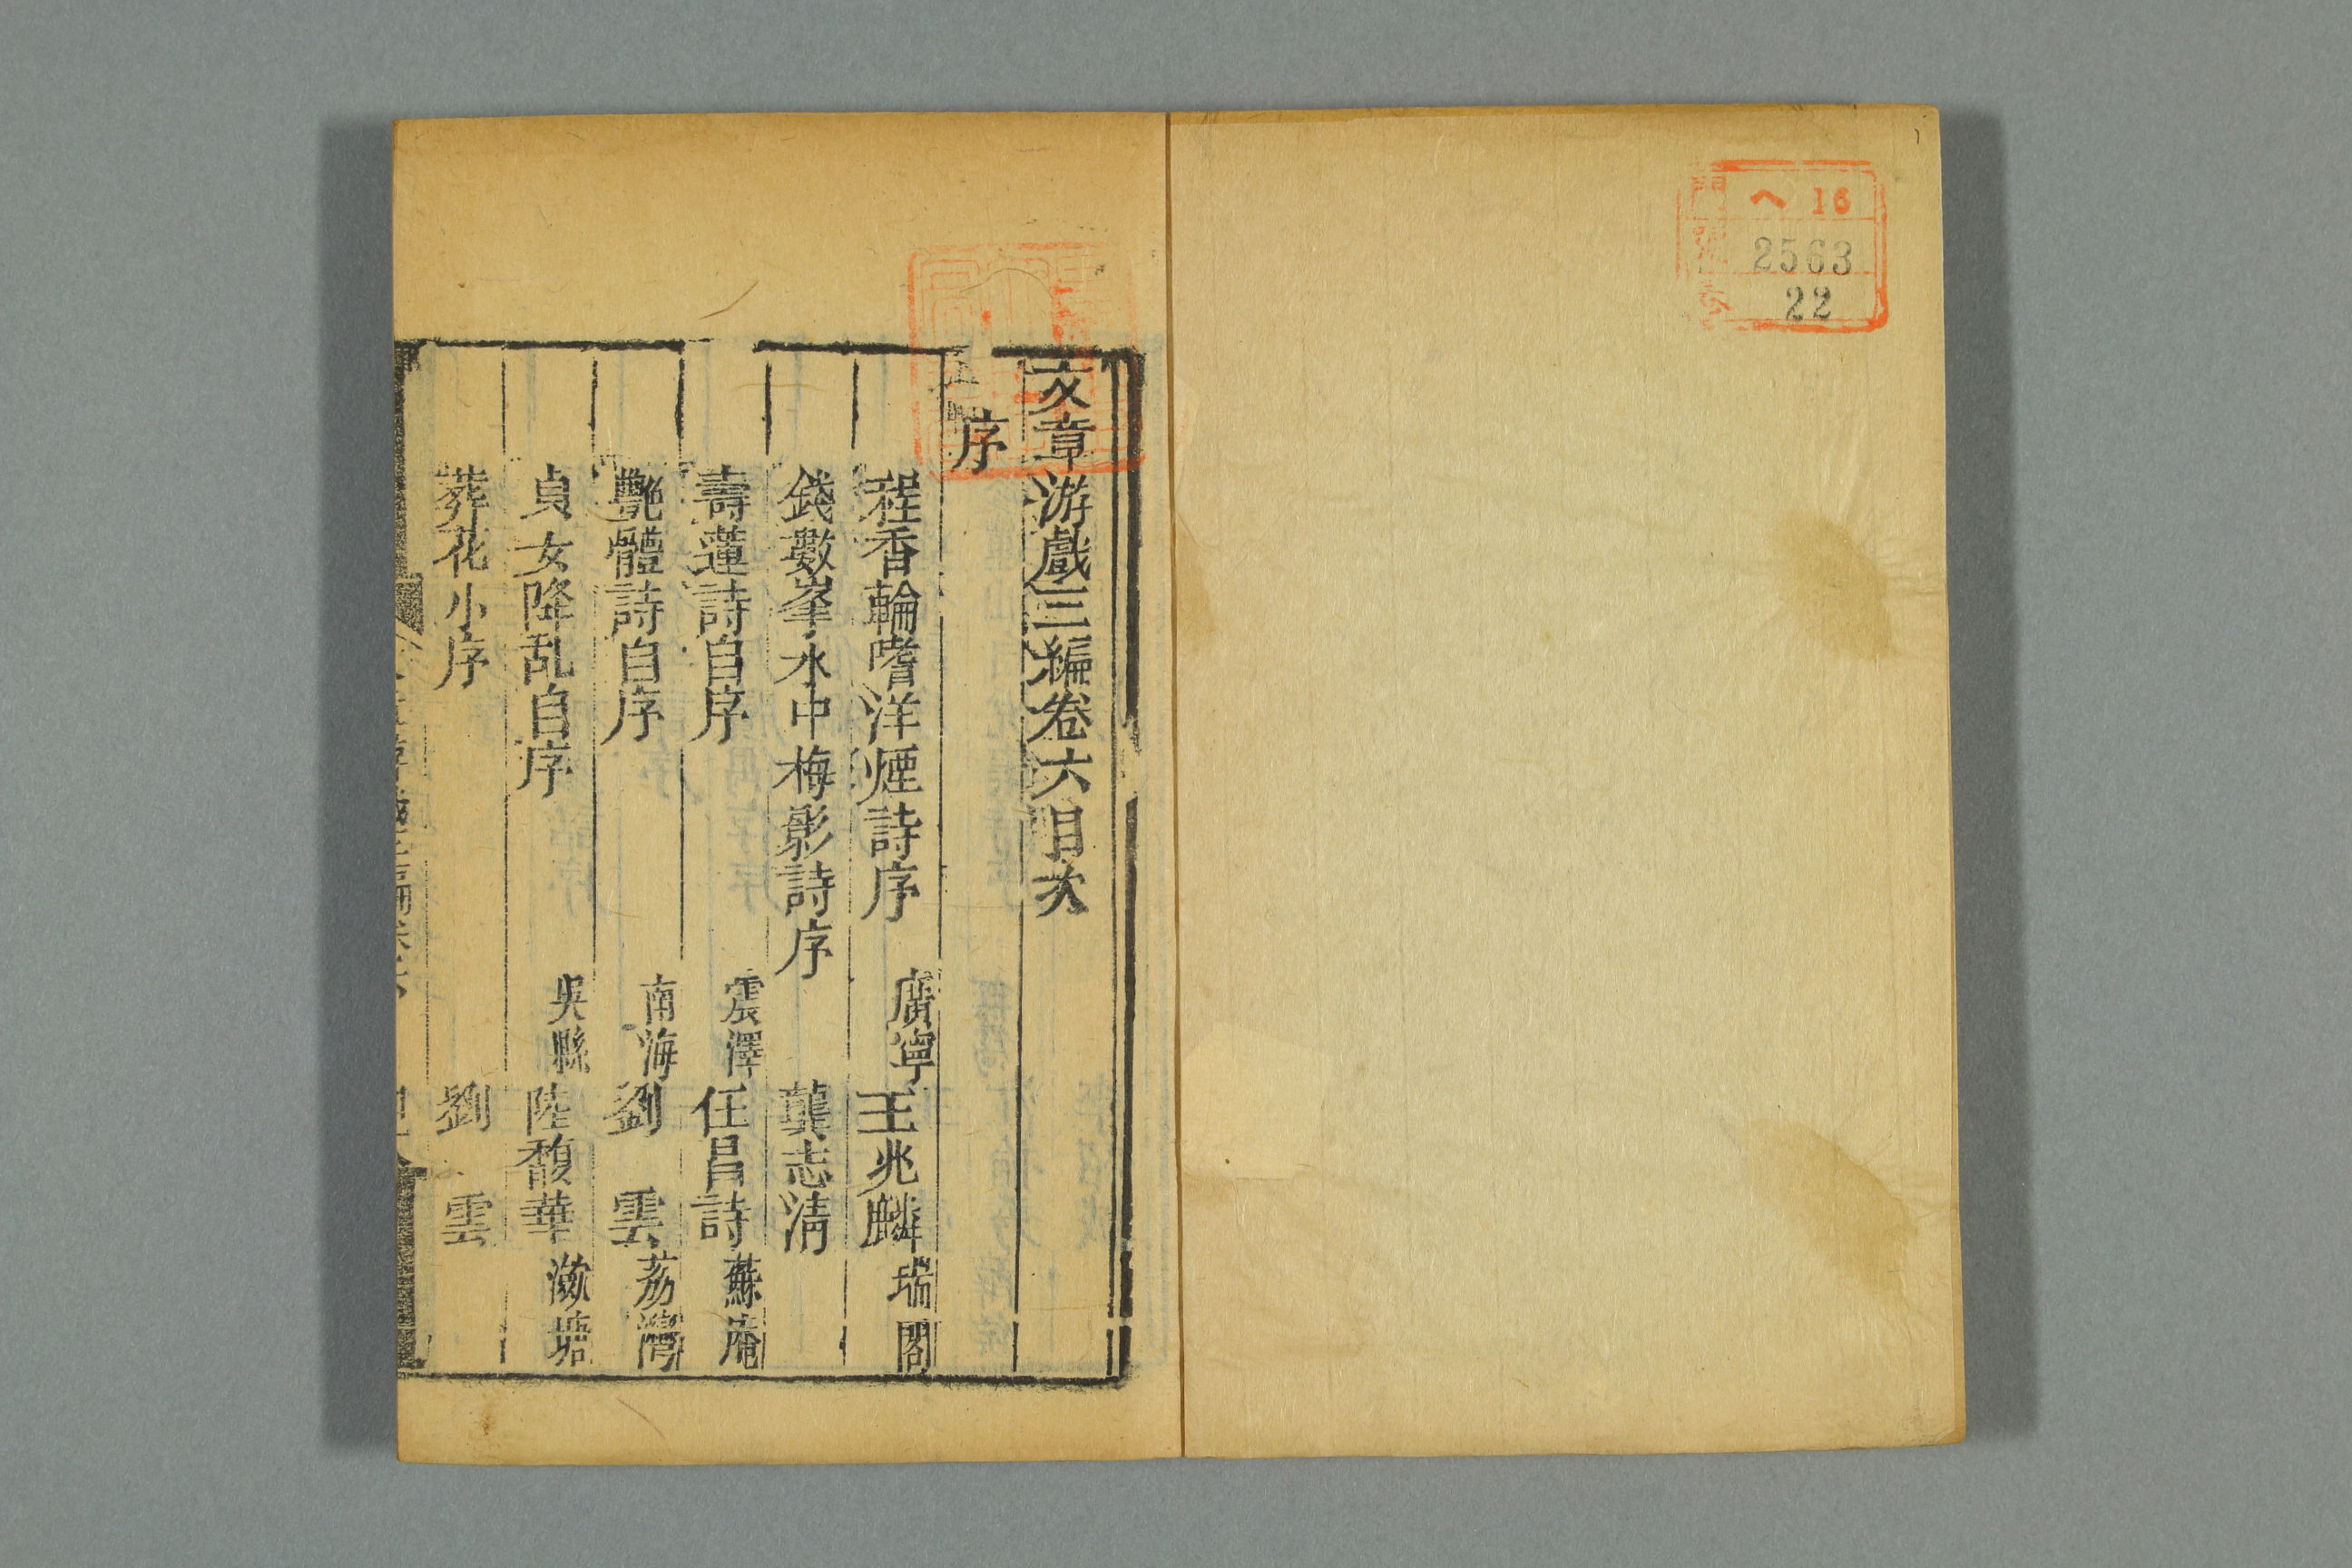 門 ヘ 16
號 2563
卷 22
文章游戲三編卷六目次
序
程香輪嗜洋煙詩序 廣寧 王兆麟 瑞閣
錢數峯水中梅影詩序 龔志清
壽蓮詩自序 震澤 任昌詩 蘇庵
艷體詩自序 南海 劉雲 荔灣
貞女降乱自序 吳縣 陸馥華 漱塘
葬花小序 劉雲